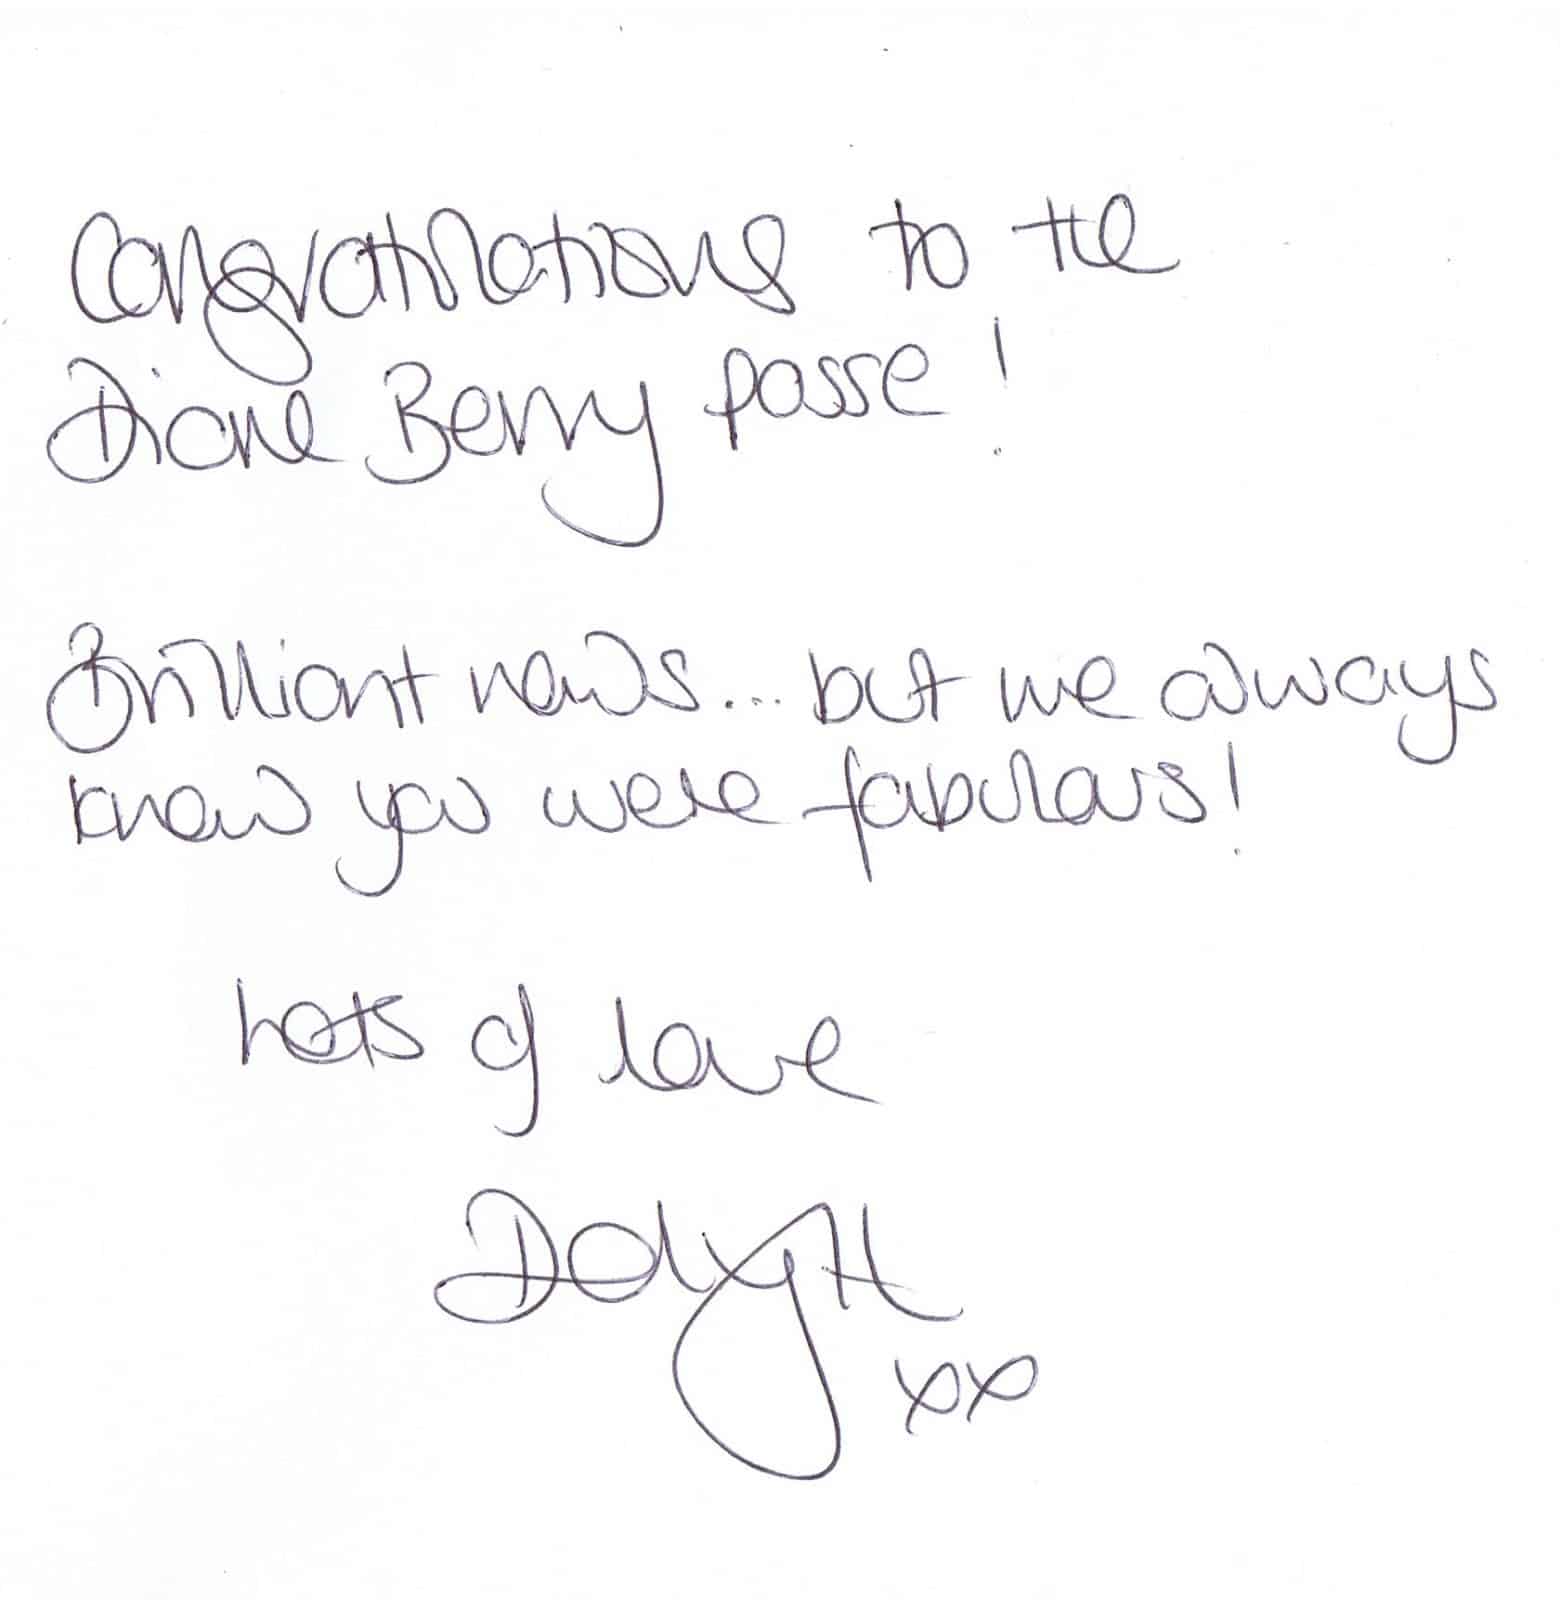 Congratulations to the
Diane Berry posse!
Brilliant news... but we always
knew you were fabulous!
Lots of love
Delyth
xx